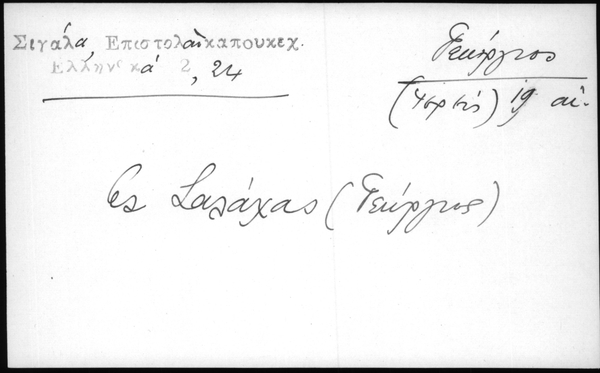 Σιγάλα, Επιστολαικαπουκεχ.
Ελληνικά 2, 24
Γεώργιος
19 αἰ.
Σαλάχας (Γεώργιος)